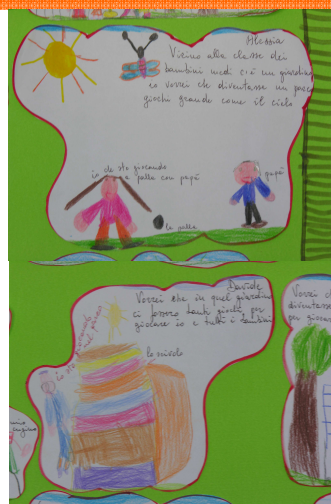 Alessia
Vicino alla classe dei
bambini medi c'è un giardino
io vorrei che diventasse un parco
giochi grande come il cielo
io che sto giocando
a palla con papà
papà
la palla
Davide
Vorrei che in quel giardino
ci fossero tanti giochi per
giocare io e tutti i bambini
lo scivolo
io sto giocando
nel parco
Vorrei
diventasse
per giocare